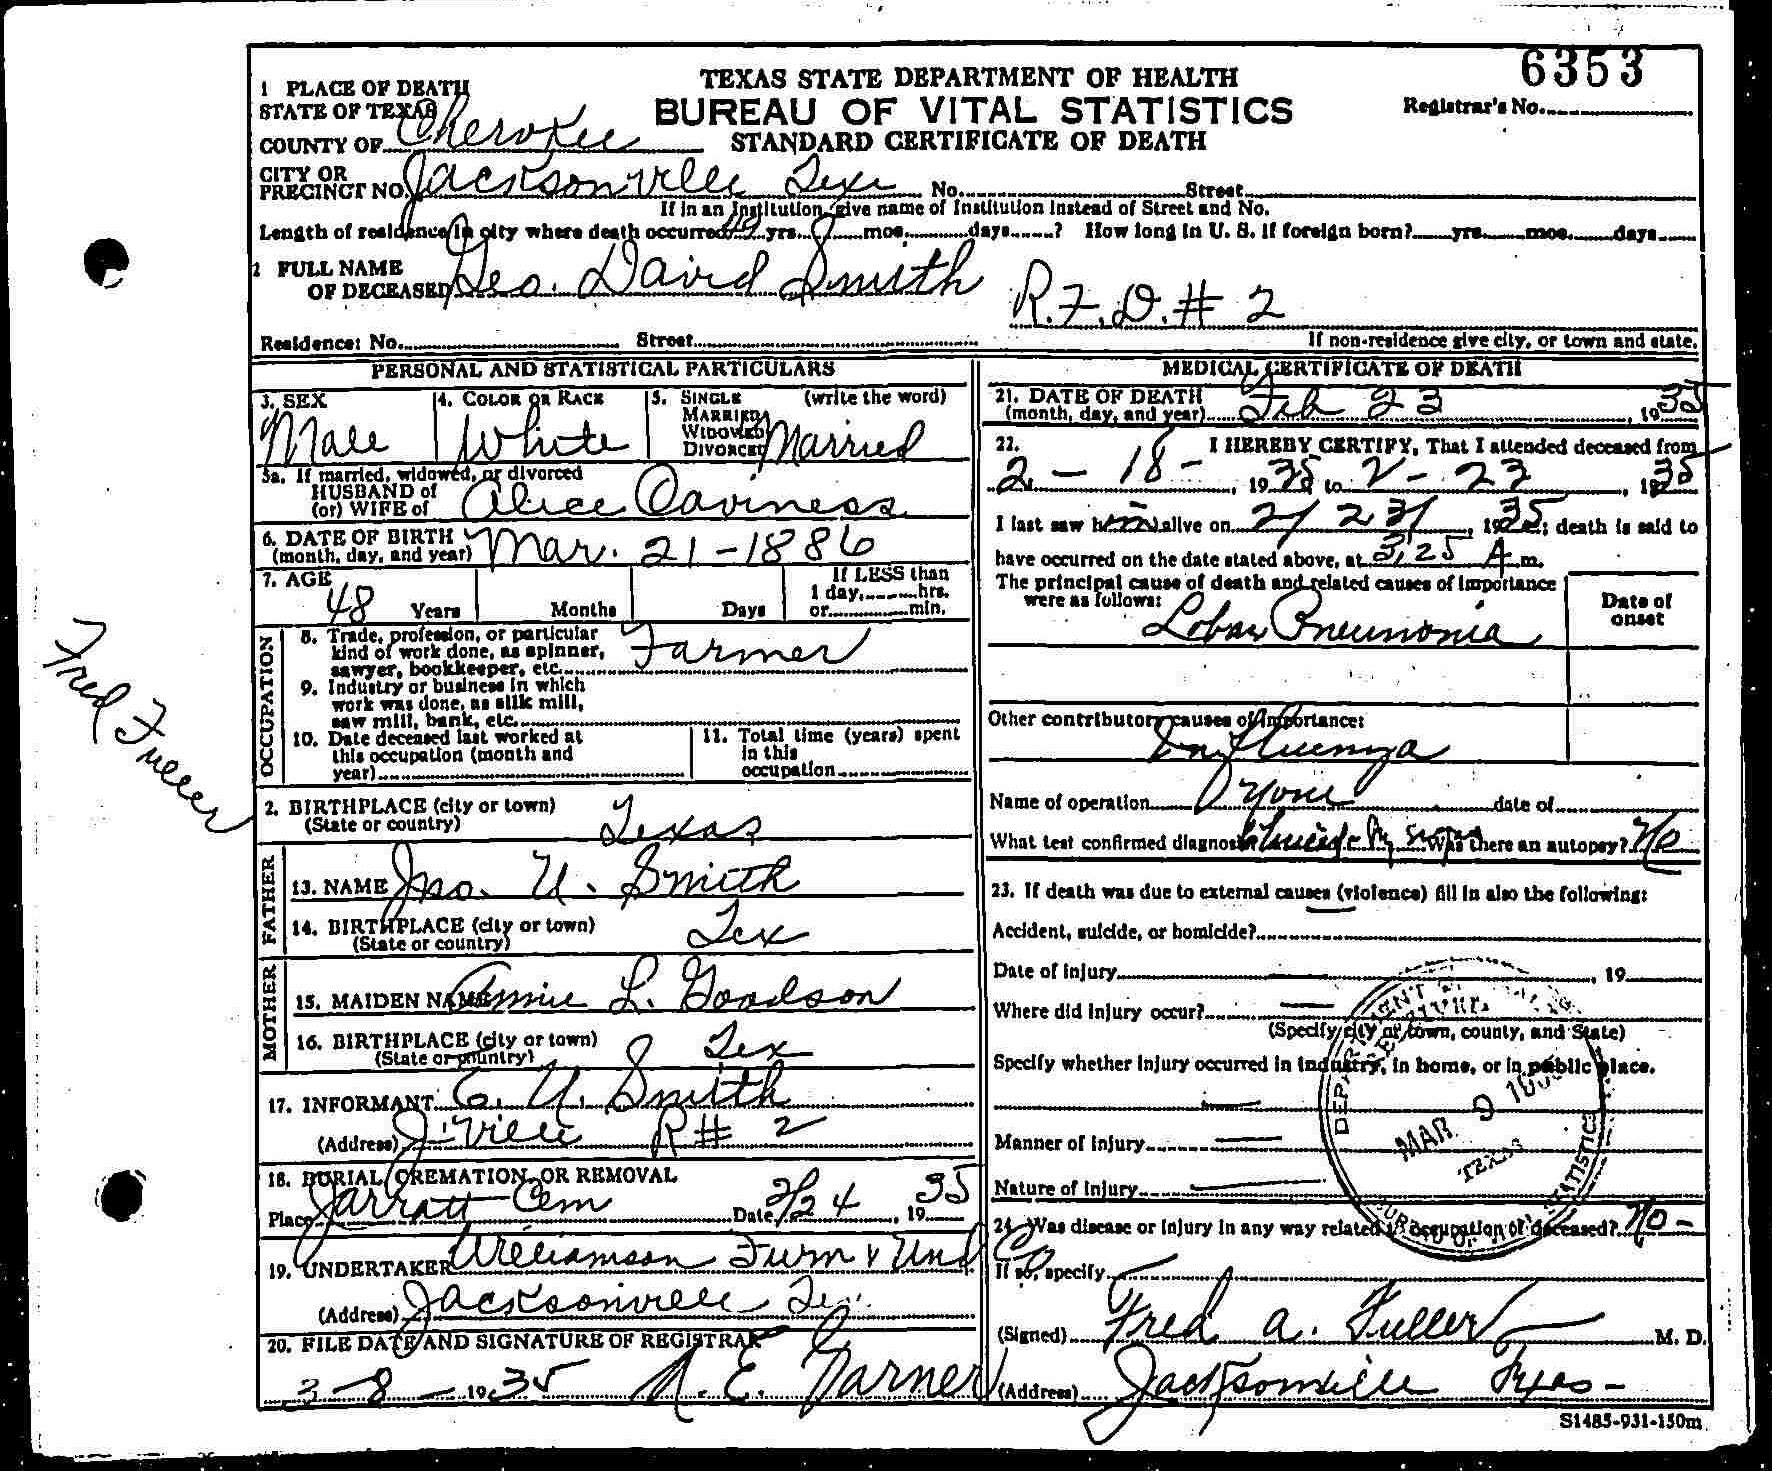 6353
TEXAS STATE DEPARTMENT OF HEALTH
BUREAU OF VITAL STATISTICS
STANDARD CERTIFICATE OF DEATH
Registrar's No.
1 PLACE OF DEATH
STATE OF TEXAS
COUNTY OF Cherokee
CITY OR
PRECINCT NO. Jacksonville Texas No. Street
If in an Institution, give name of Institution instead of Street and No.
Length of residence in city where death occurred yrs. mos. days ? How long in U. S. if foreign born? yrs. mos. days
2 FULL NAME
OF DECEASED Geo. David Smith
R.F.D. # 2
Residence: No. Street
If non-residence give city, or town and state.
PERSONAL AND STATISTICAL PARTICULARS
3. SEX
Male
4. COLOR OR RACE
White
5. SINGLE (write the word)
MARRIED
WIDOWED
DIVORCED Married
5a. If married, widowed, or divorced
HUSBAND of
(or) WIFE of Alice Caviness
6. DATE OF BIRTH
(month, day, and year) Mar. 21-1886
7. AGE
48 Years Months Days
If LESS than
1 day, hrs.
or min.
OCCUPATION
8. Trade, profession, or particular
kind of work done, as spinner,
sawyer, bookkeeper, etc. Farmer
9. Industry or business in which
work was done, as silk mill,
saw mill, bank, etc.
10. Date deceased last worked at
this occupation (month and
year)
11. Total time (years) spent
in this
occupation
2. BIRTHPLACE (city or town)
(State or country) Texas
FATHER
13. NAME Jno. U. Smith
14. BIRTHPLACE (city or town)
(State or country) Tex
MOTHER
15. MAIDEN NAME Annie L. Goodson
16. BIRTHPLACE (city or town)
(State or country) Tex
17. INFORMANT C. U. Smith
(Address) J'ville R# 2
18. BURIAL, CREMATION, OR REMOVAL
Place Jarratt Cem Date 2/24, 1935
19. UNDERTAKER Williamson Furn & Und Co
(Address) Jacksonville Tex.
20. FILE DATE AND SIGNATURE OF REGISTRAR
3-8-1935 N. E. Warner
MEDICAL CERTIFICATE OF DEATH
21. DATE OF DEATH
(month, day, and year) Feb 23, 1935
22. I HEREBY CERTIFY, That I attended deceased from
2-18-, 1935 to 2-23, 1935
I last saw him alive on 2/23/, 1935; death is said to
have occurred on the date stated above, at 3,25 A. m.
The principal cause of death and related causes of importance
were as follows:
Date of
onset
Lobar Pneumonia
Other contributory causes of importance:
Influenza
Name of operation None date of
What test confirmed diagnosis? Was there an autopsy? No
23. If death was due to external causes (violence) fill in also the following:
Accident, suicide, or homicide?
Date of injury , 19
Where did injury occur?
(Specify city or town, county, and State)
Specify whether injury occurred in industry, in home, or in public place.
Manner of injury
Nature of injury
24. Was disease or injury in any way related to occupation of deceased? No-
If so, specify
(Signed) Fred A. Fuller M. D.
(Address) Jacksonville Texas-
S1485-931-150m
MAR 9
TEXAS
Fred Fuller